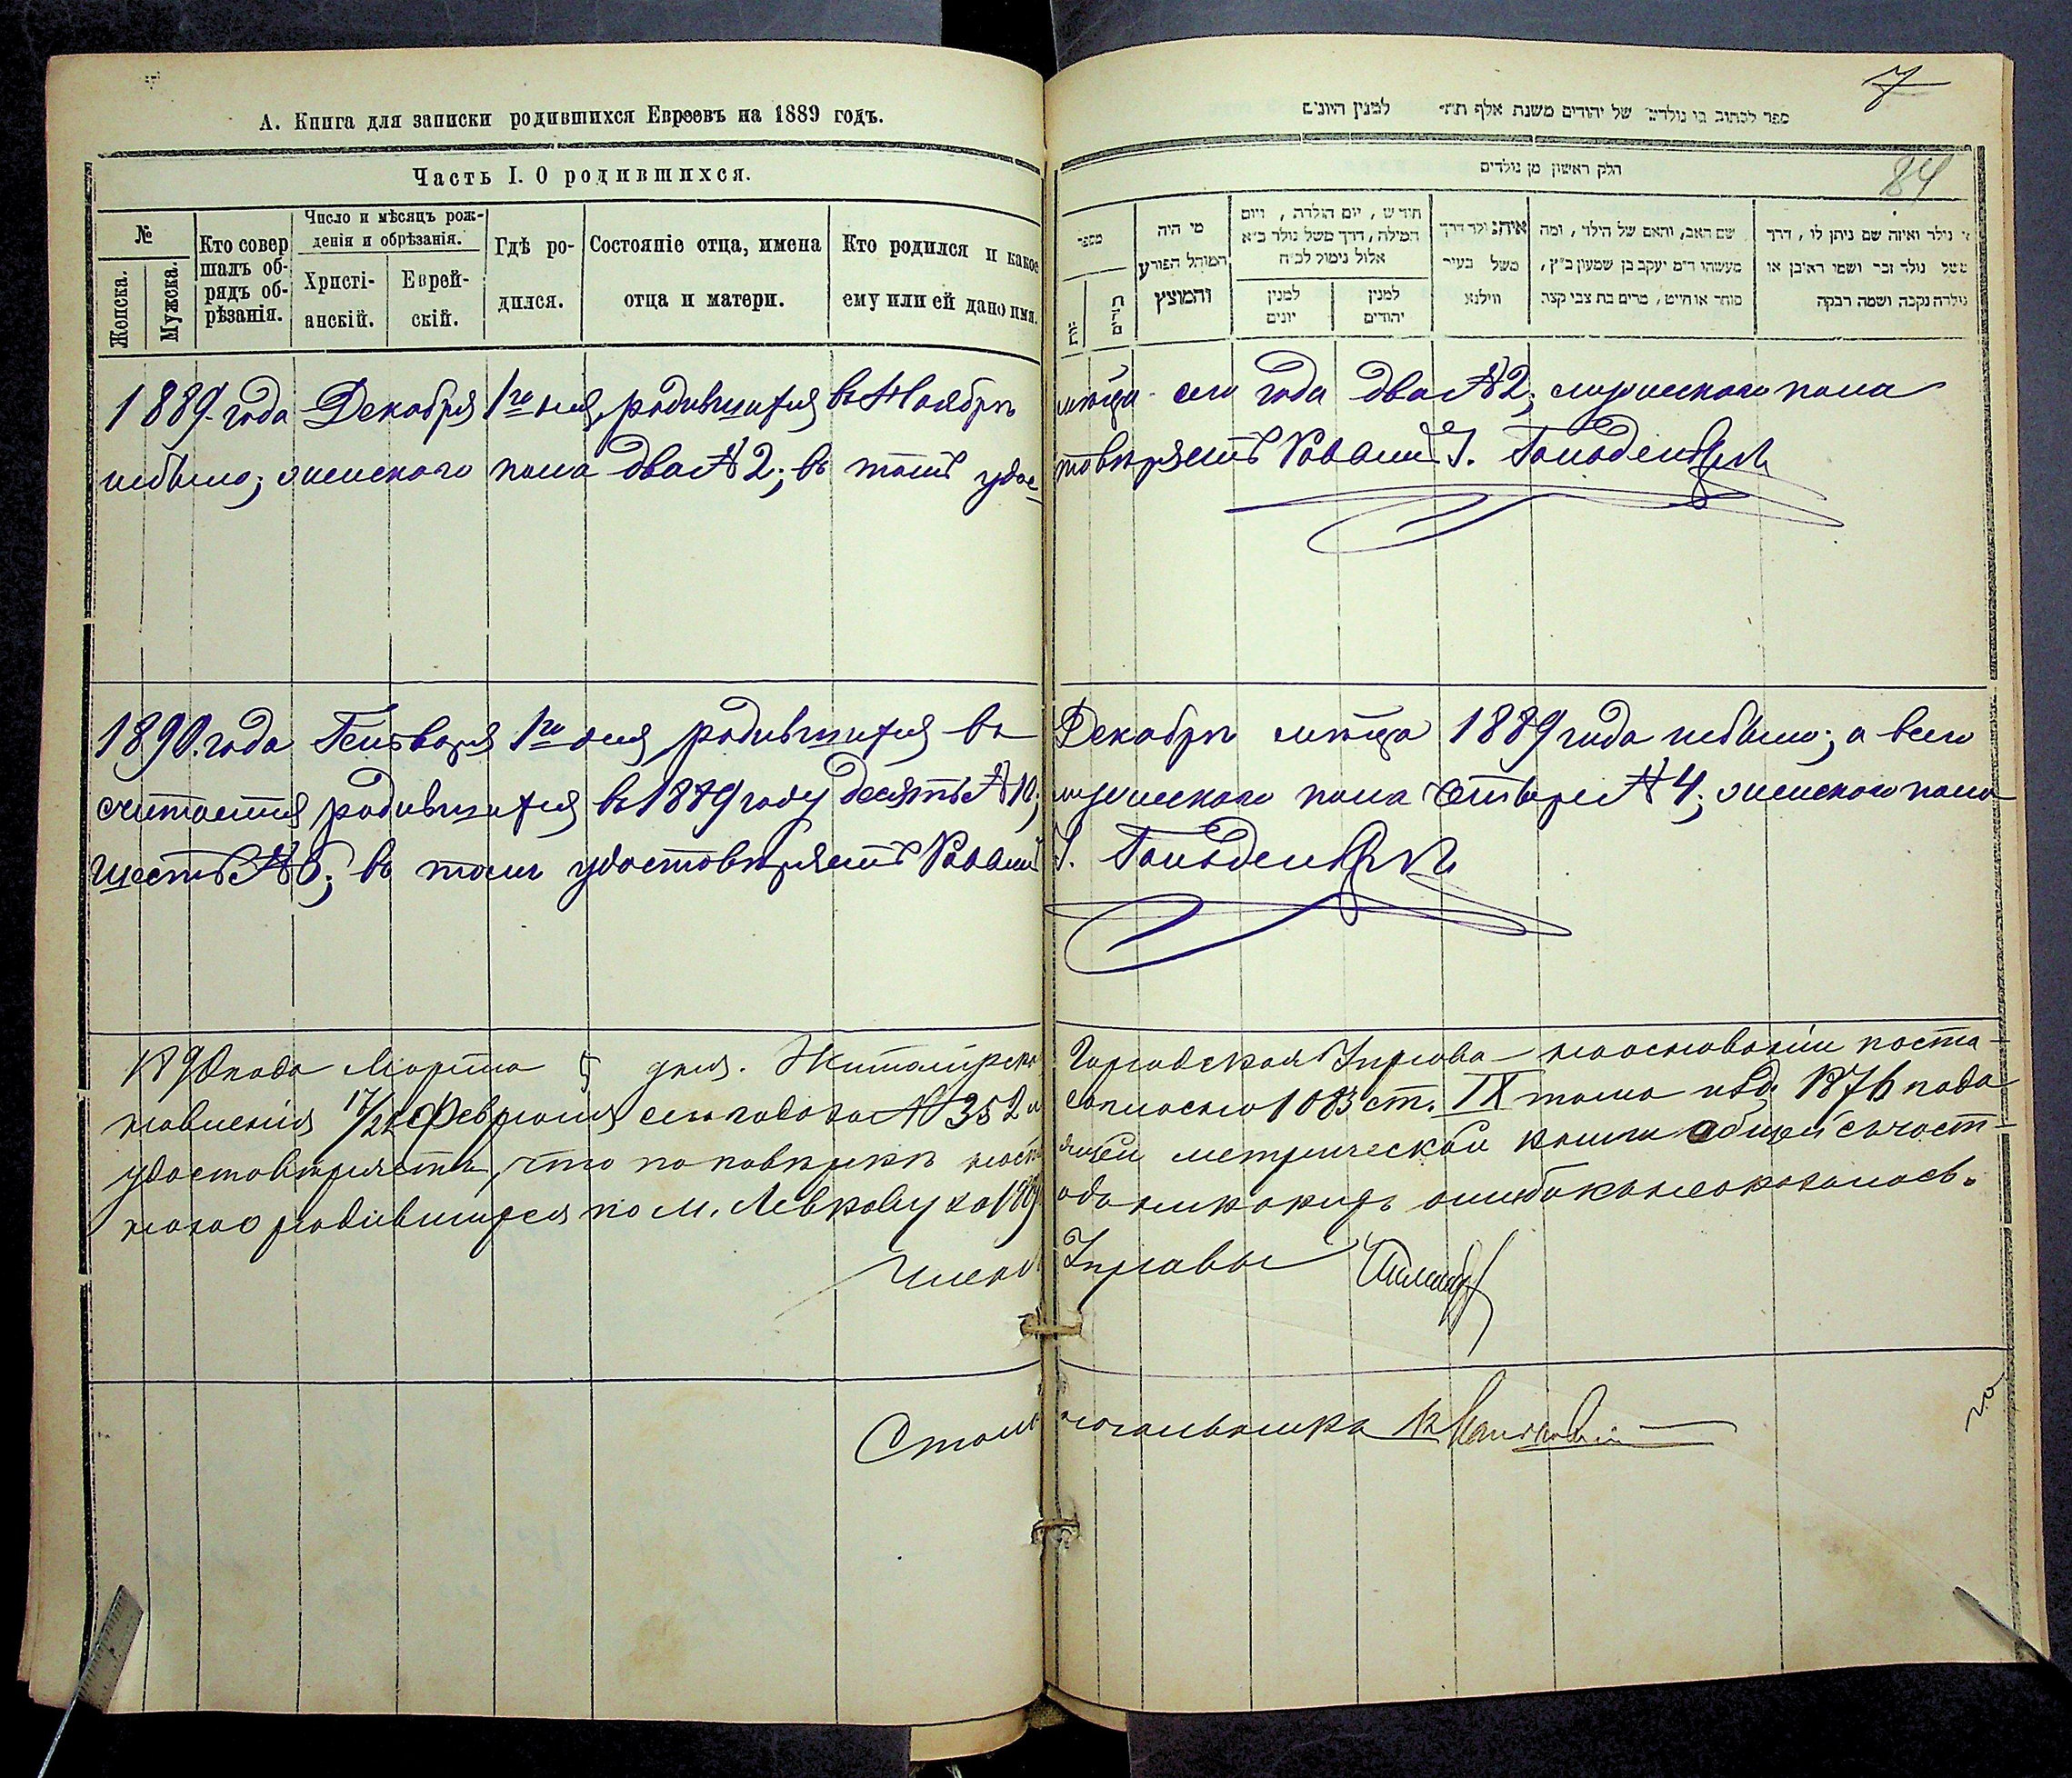 А. Книга для записки родившихся Евреевъ на 1889 годъ.
Часть I. О родившихся.
№
Женска.
Мужска.
Кто совер
шалъ об-
рядъ об-
рѣзанія.
Число и мѣсяцъ рож-
денія и обрѣзанія.
Христі-
анскій.
Еврей-
скій.
Гдѣ ро-
дился.
Состояніе отца, имена
отца и матери.
Кто родился и какое
ему или ей дано имя.
7
84
ספר לכתוב בו נולדים של יהודים משנת אלף תת למנין היונים
חלק ראשון מן נולדים
מספר
מי היה
המוהל הפורע
והמוצץ
חודש , יום הולדת , ויום
המילה , דרך משל נולד כ״א
אלול נימול לכ״ח
למנין
יונים
למנין
יהודים
איה נולד דרך
משל בעיר
ווילנא
שם האב, והאם של הילד , ומה
מעשהו ר״מ יעקב בן שמעון כ״ץ,
סוחר או חייט , מרים בת צבי קצת
נולד ואיזה שם ניתן לו , דרך
משל נולד זכר ושמו ראובן או
נולדה נקבה ושמה רבקה
1889 года Декабря 1го дня, родившихся въ Ноябрѣ мѣсца сего года два № 2; мужескаго пола
небыло; женскаго пола два № 2; въ томъ удостовѣряетъ Раввинъ І. Гольденберг
1890 года Генваря 1го дня родившихся въ Декабрѣ мѣсца 1889 года небыло; а всего
считается родившихся въ 1889 году десять № 10; мужескаго пола четыре № 4; женскаго пола
шесть № 6; въ томъ удостовѣряетъ Раввинъ І. Гольденберг
1890 года Марта 5 дня. Житомірская Городская Управа на основаніи поста-
новленія 17/22 Февраля сего года за № 352 и согласно 1083 ст. IX тома изд. 1876 года
удостовѣряетъ, что по повѣркѣ настоящей метрической книги общей части
о родившихся по м. Левкову за 1889 года никакихъ ошибокъ не оказалось.
Членъ Управы
Столоначальникъ